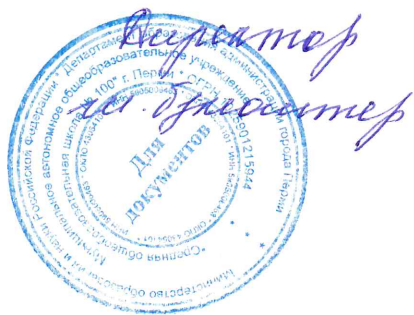 Директор
гл. бухгалтер
Министерство образования и науки Российской Федерации * Департамент образования администрации города Перми
Муниципальное автономное общеобразовательное учреждение
"Средняя общеобразовательная школа № 100" г. Перми * ОГРН
Для
документов